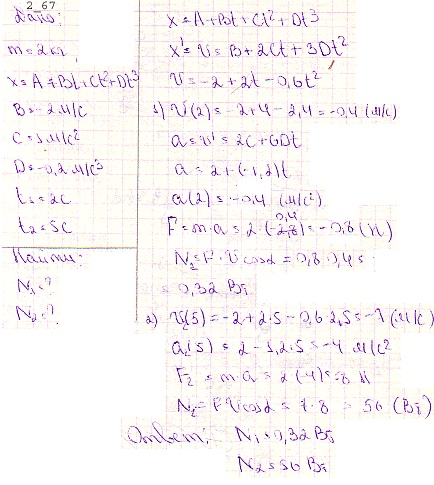 2_67
Дано:
m = 2 кг
x = A + Bt + Ct² + Dt³
B = -2 м/с
C = 1 м/с²
D = -0,2 м/с³
t₁ = 2с
t₂ = 5с
Найти:
N₁ - ?
N₂ - ?
x = A + Bt + Ct² + Dt³
x' = V = B + 2Ct + 3Dt²
V = -2 + 2t - 0,6t²
1) V(2) = -2 + 4 - 2,4 = -0,4 (м/с)
a = V' = 2C + 6Dt
a = 2 + (-1,2)t
a(2) = -0,4 (м/с²)
F = m·a = 2·(-0,4) = -0,8 (Н)
N₁ = F·V cosα = 0,8·0,4 =
= 0,32 Вт
2) V₂(5) = -2 + 2·5 - 0,6·2,5 = -7 (м/с)
a₂(5) = 2 - 1,2·5 = -4 м/с²
F₂ = m·a = 2(-4) = -8 Н
N₂ = F V cosα = 7·8 = 56 (Вт)
Ответ: N₁ = 0,32 Вт
N₂ = 56 Вт